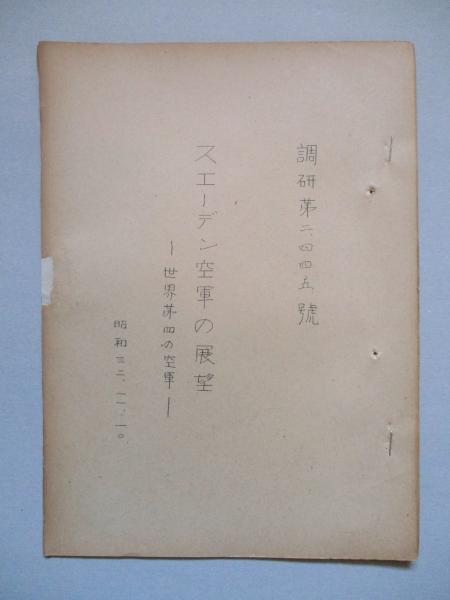 調研第二四四五號
スエーデン空軍の展望
ー世界第四の空軍ー
昭和三二、一一、一〇